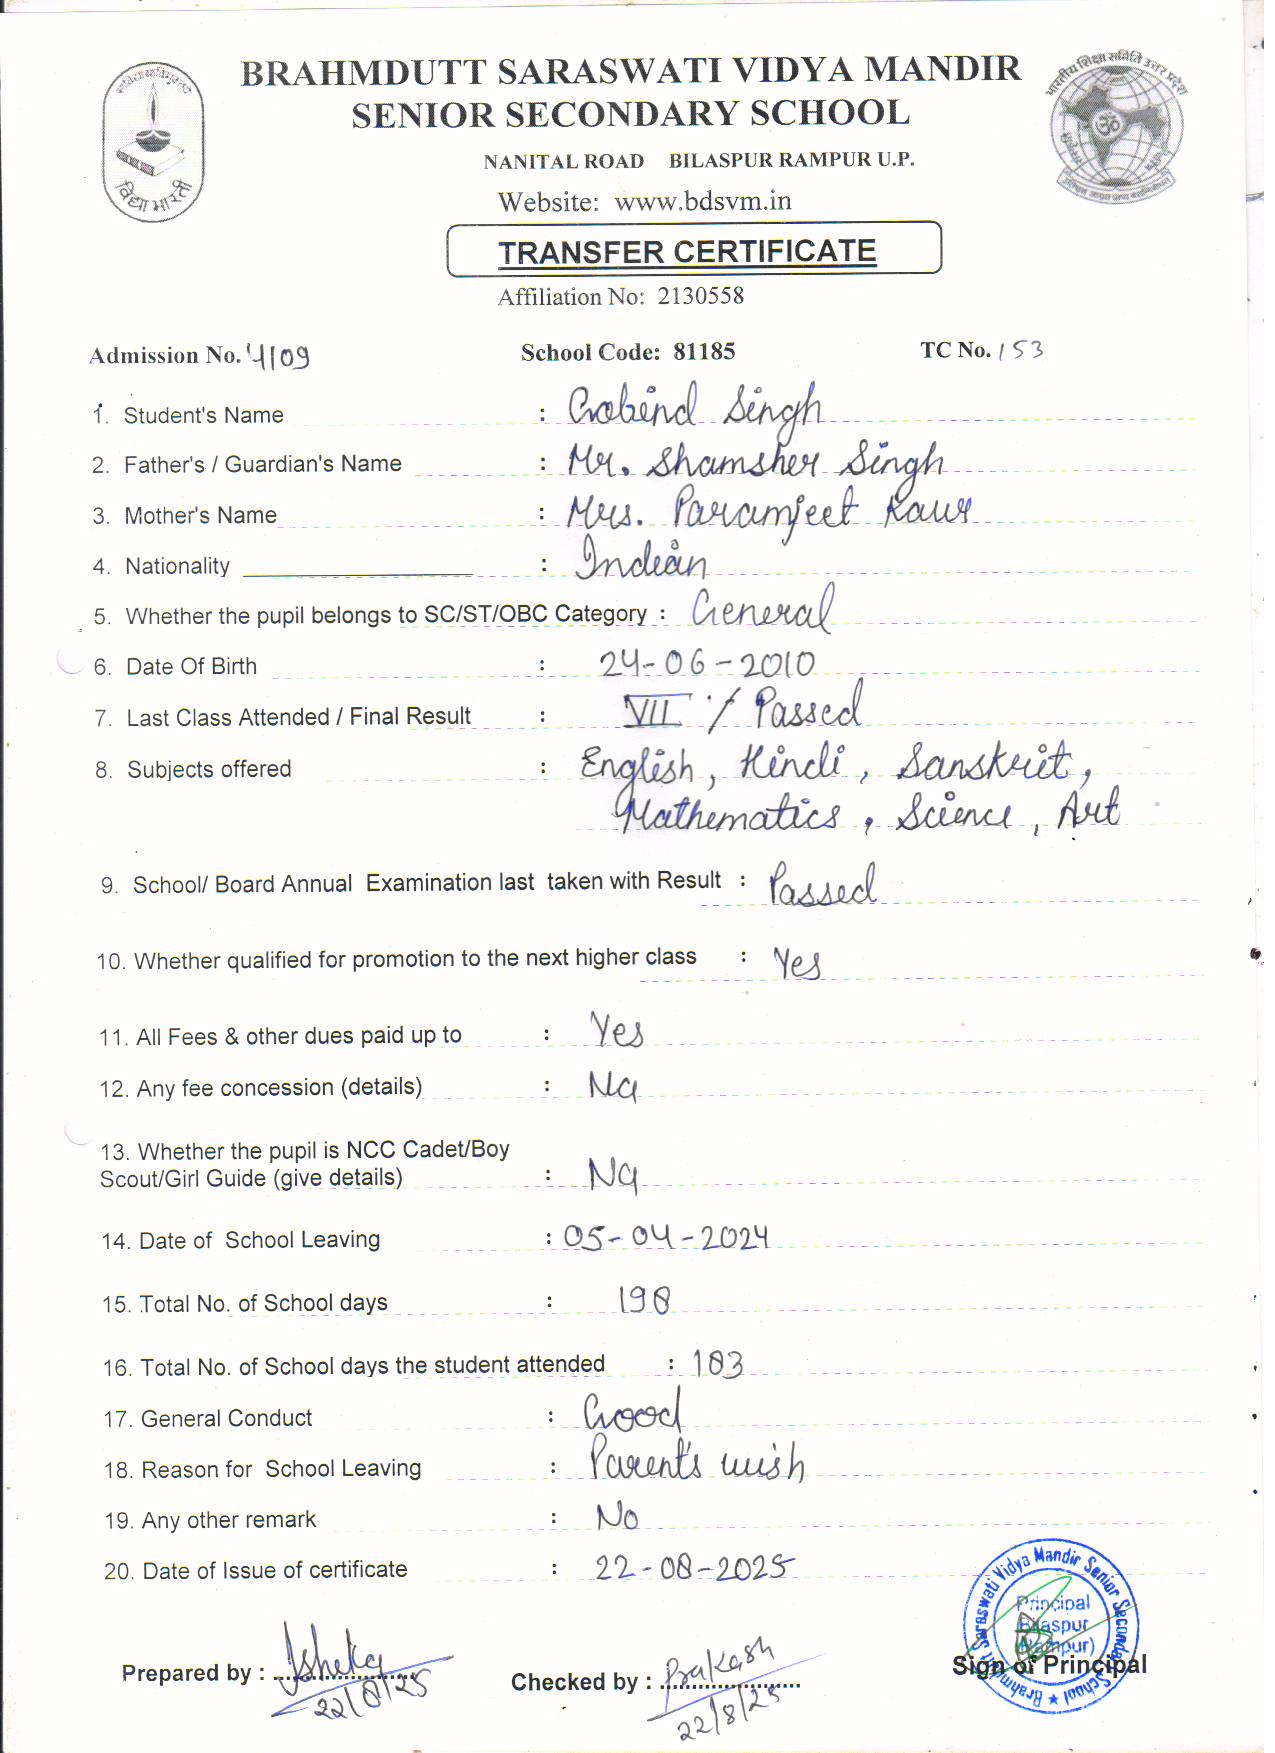 BRAHMDUTT SARASWATI VIDYA MANDIR
SENIOR SECONDARY SCHOOL
NANITAL ROAD BILASPUR RAMPUR U.P.
Website: www.bdsvm.in
विद्या भारती
भारतीय शिक्षा समिति उत्तर प्रदेश
TRANSFER CERTIFICATE
Affiliation No: 2130558
Admission No. 4109 School Code: 81185 TC No. 153
1. Student's Name : Gobind Singh
2. Father's / Guardian's Name : Mr. Shamsher Singh
3. Mother's Name : Mrs. Paramjeet Kaur
4. Nationality : Indian
5. Whether the pupil belongs to SC/ST/OBC Category : General
6. Date Of Birth : 24-06-2010
7. Last Class Attended / Final Result : VII / Passed
8. Subjects offered : English, Hindi, Sanskrit,
Mathematics, Science, Art
9. School/ Board Annual Examination last taken with Result : Passed
10. Whether qualified for promotion to the next higher class : Yes
11. All Fees & other dues paid up to : Yes
12. Any fee concession (details) : Na
13. Whether the pupil is NCC Cadet/Boy
Scout/Girl Guide (give details) : Na
14. Date of School Leaving : 05-04-2024
15. Total No. of School days : 198
16. Total No. of School days the student attended : 183
17. General Conduct : Good
18. Reason for School Leaving : Parent's wish
19. Any other remark : No
20. Date of Issue of certificate : 22-08-2025
Brahmdutt Saraswati Vidya Mandir Senior Secondary School
Principal
Bilaspur
(Rampur)
Prepared by : 22/8/25 Checked by : Prakash 22/8/25 Sign of Principal